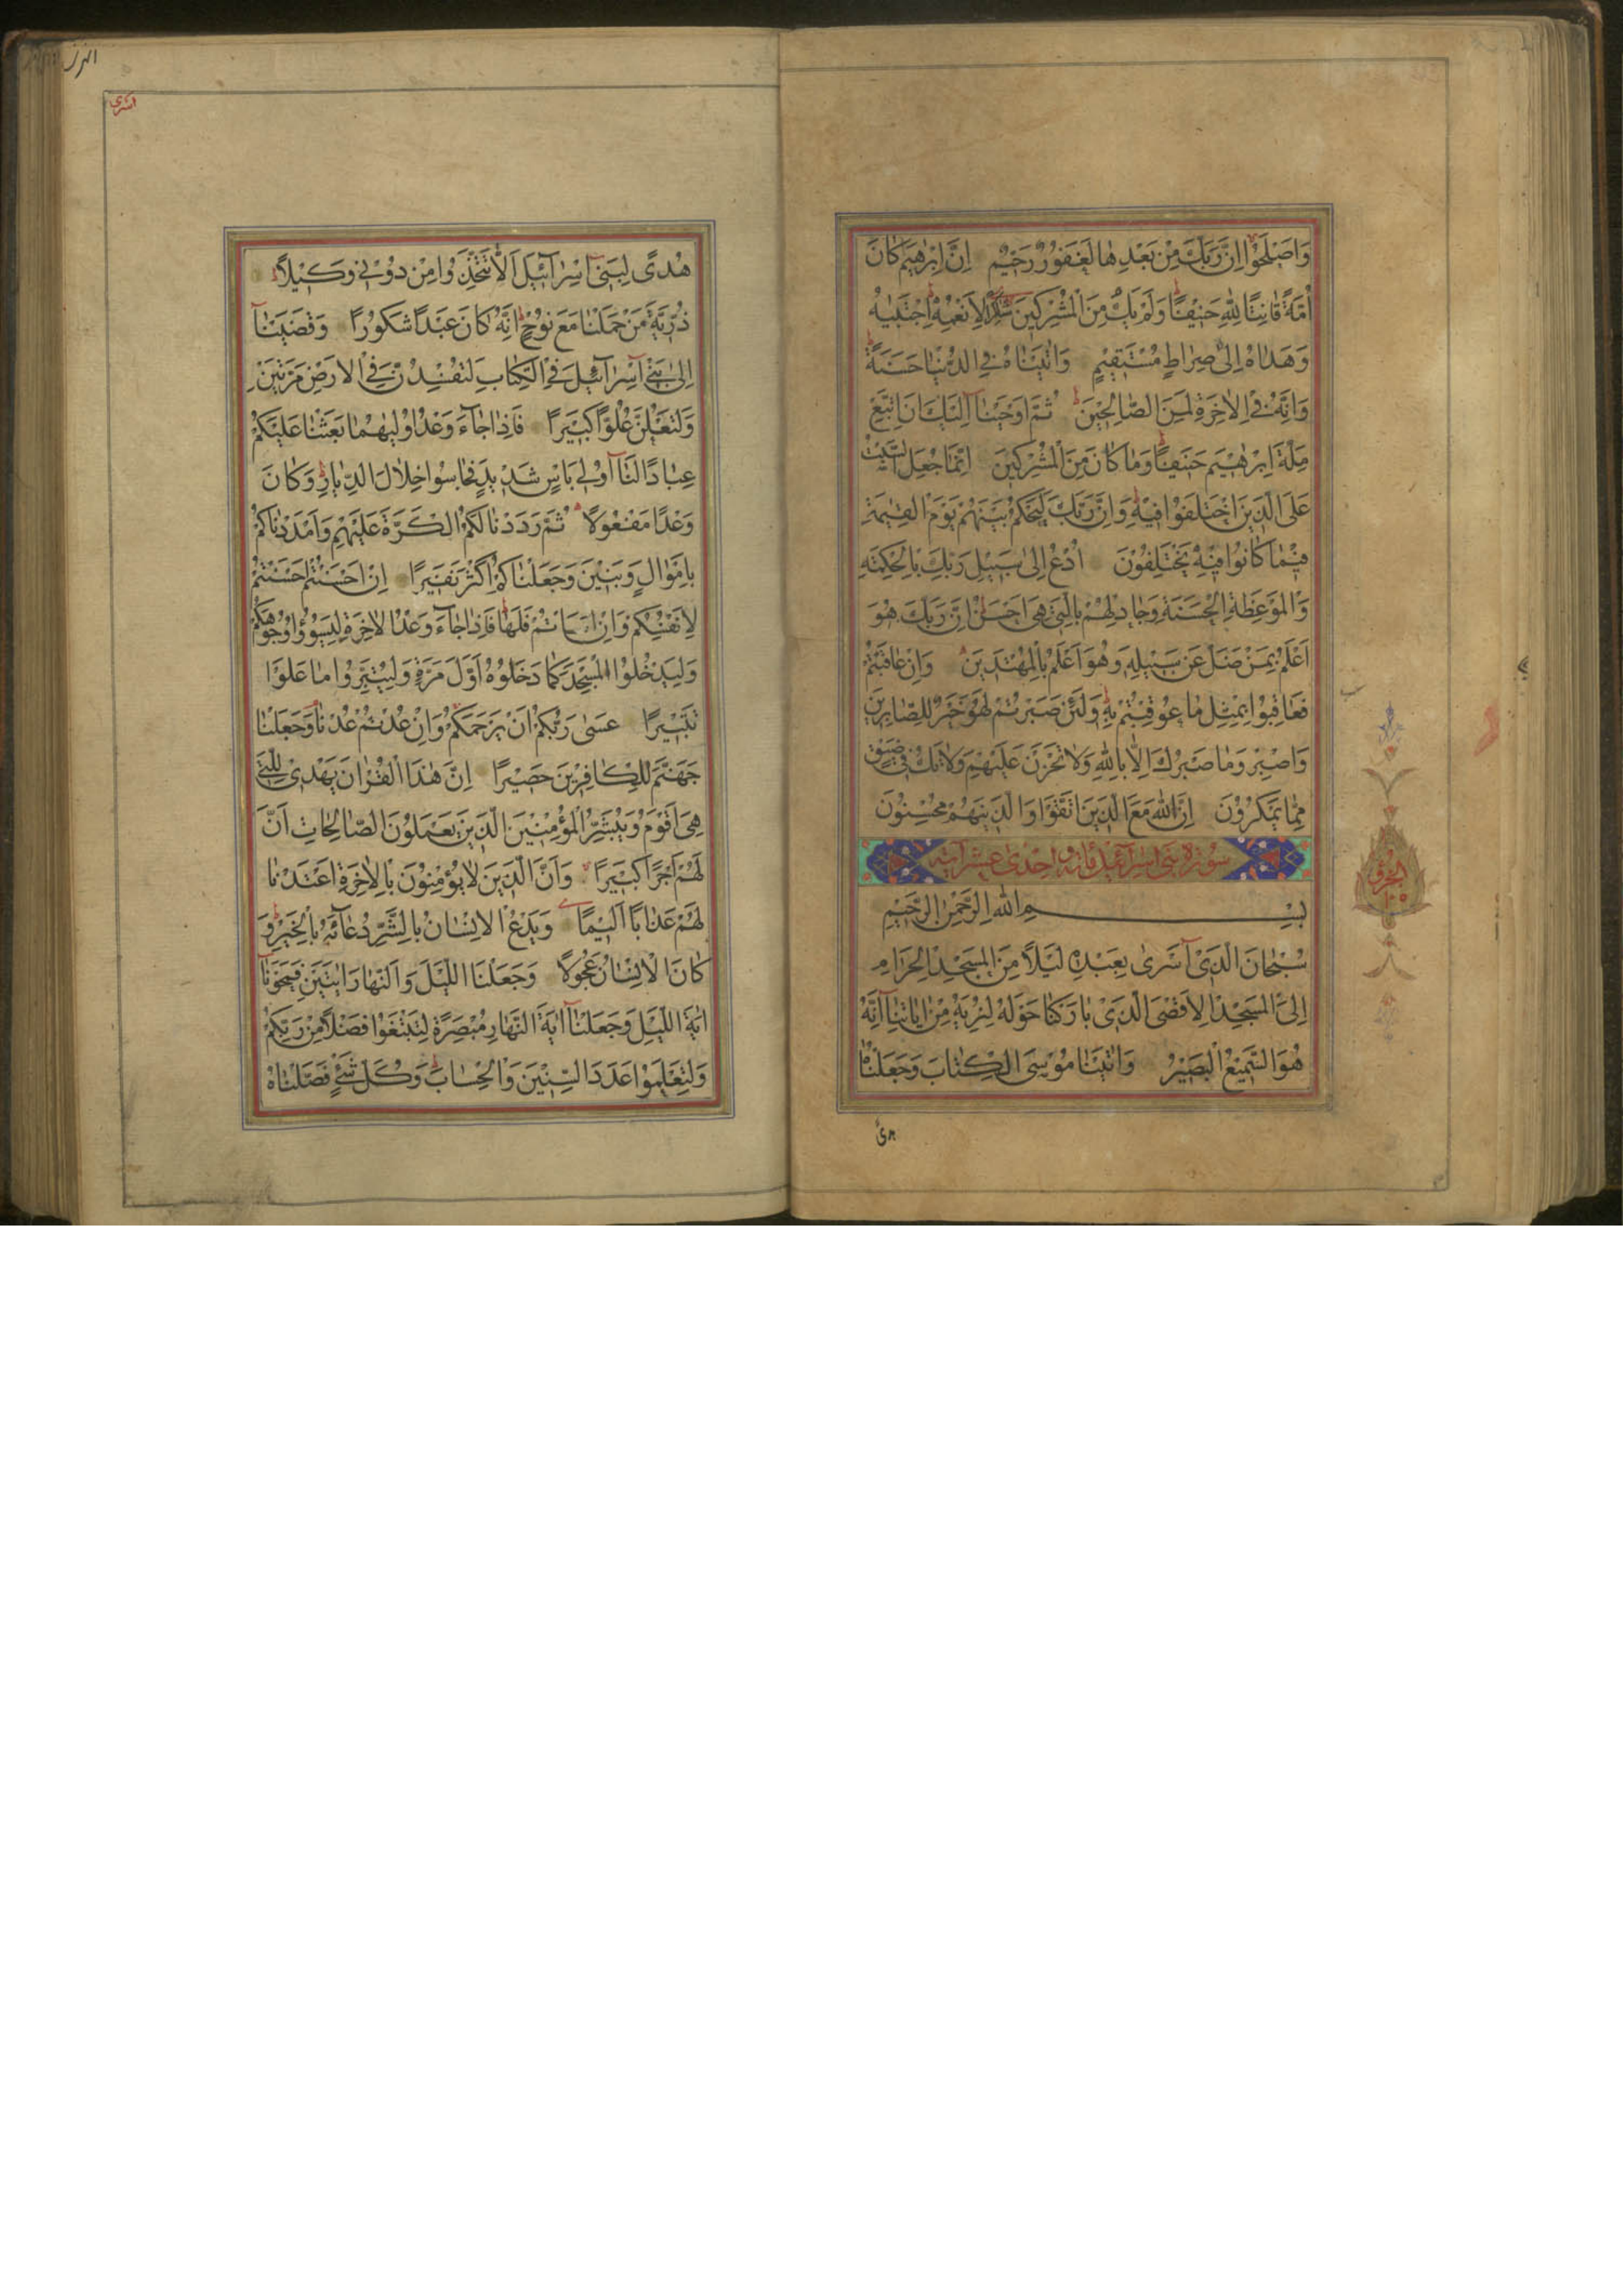 وَاَصْلَحُوا اِنَّ رَبَّكَ مِنْ بَعْدِهَا لَغَفُورٌ رَحِيمٌ اِنَّ اِبْرٰهِيمَ كَانَ
اُمَّةً قَانِتًا لِلّٰهِ حَنِيفًا وَلَمْ يَكُ مِنَ الْمُشْرِكِينَ شَاكِرًا لِاَنْعُمِهِ اِجْتَبٰيهُ
وَهَدٰاهُ اِلٰى صِرَاطٍ مُسْتَقِيمٍ وَاٰتَيْنَاهُ فِي الدُّنْيَا حَسَنَةً
وَاِنَّهُ فِي الْاٰخِرَةِ لَمِنَ الصَّالِحِينَ ثُمَّ اَوْحَيْنَا اِلَيْكَ اَنِ اتَّبِعْ
مِلَّةَ اِبْرٰهِيمَ حَنِيفًا وَمَا كَانَ مِنَ الْمُشْرِكِينَ اِنَّمَا جُعِلَ السَّبْتُ
عَلَى الَّذِينَ اخْتَلَفُوا فِيهِ وَاِنَّ رَبَّكَ لَيَحْكُمُ بَيْنَهُمْ يَوْمَ الْقِيٰمَةِ
فِيمَا كَانُوا فِيهِ يَخْتَلِفُونَ اُدْعُ اِلٰى سَبِيلِ رَبِّكَ بِالْحِكْمَةِ
وَالْمَوْعِظَةِ الْحَسَنَةِ وَجَادِلْهُمْ بِالَّتِي هِيَ اَحْسَنُ اِنَّ رَبَّكَ هُوَ
اَعْلَمُ بِمَنْ ضَلَّ عَنْ سَبِيلِهِ وَهُوَ اَعْلَمُ بِالْمُهْتَدِينَ وَاِنْ عَاقَبْتُمْ
فَعَاقِبُوا بِمِثْلِ مَا عُوقِبْتُمْ بِهِ وَلَئِنْ صَبَرْتُمْ لَهُوَ خَيْرٌ لِلصَّابِرِينَ
وَاصْبِرْ وَمَا صَبْرُكَ اِلَّا بِاللّٰهِ وَلَا تَحْزَنْ عَلَيْهِمْ وَلَا تَكُ فِي ضَيْقٍ
مِمَّا يَمْكُرُونَ اِنَّ اللّٰهَ مَعَ الَّذِينَ اتَّقَوْا وَالَّذِينَ هُمْ مُحْسِنُونَ
سورة بنى اسرائيل مائة واحدى عشر آية
بِسْمِ اللّٰهِ الرَّحْمٰنِ الرَّحِيمِ
سُبْحَانَ الَّذِي اَسْرٰى بِعَبْدِهِ لَيْلًا مِنَ الْمَسْجِدِ الْحَرَامِ
اِلَى الْمَسْجِدِ الْاَقْصَى الَّذِي بَارَكْنَا حَوْلَهُ لِنُرِيَهُ مِنْ اٰيَاتِنَا اِنَّهُ
هُوَ السَّمِيعُ الْبَصِيرُ وَاٰتَيْنَا مُوسَى الْكِتَابَ وَجَعَلْنَاهُ
هدى
الجزو
١٥
اسرى
هُدًى لِبَنِي اِسْرَائِيلَ اَلَّا تَتَّخِذُوا مِنْ دُونِي وَكِيلًا
ذُرِّيَّةَ مَنْ حَمَلْنَا مَعَ نُوحٍ اِنَّهُ كَانَ عَبْدًا شَكُورًا وَقَضَيْنَا
اِلٰى بَنِي اِسْرَائِيلَ فِي الْكِتَابِ لَتُفْسِدُنَّ فِي الْاَرْضِ مَرَّتَيْنِ
وَلَتَعْلُنَّ عُلُوًّا كَبِيرًا فَاِذَا جَاءَ وَعْدُ اُولٰيهُمَا بَعَثْنَا عَلَيْكُمْ
عِبَادًا لَنَا اُولِي بَاْسٍ شَدِيدٍ فَجَاسُوا خِلَالَ الدِّيَارِ وَكَانَ
وَعْدًا مَفْعُولًا ثُمَّ رَدَدْنَا لَكُمُ الْكَرَّةَ عَلَيْهِمْ وَاَمْدَدْنَاكُمْ
بِاَمْوَالٍ وَبَنِينَ وَجَعَلْنَاكُمْ اَكْثَرَ نَفِيرًا اِنْ اَحْسَنْتُمْ اَحْسَنْتُمْ
لِاَنْفُسِكُمْ وَاِنْ اَسَاْتُمْ فَلَهَا فَاِذَا جَاءَ وَعْدُ الْاٰخِرَةِ لِيَسُوؤُا وُجُوهَكُمْ
وَلِيَدْخُلُوا الْمَسْجِدَ كَمَا دَخَلُوهُ اَوَّلَ مَرَّةٍ وَلِيُتَبِّرُوا مَا عَلَوْا
تَتْبِيرًا عَسٰى رَبُّكُمْ اَنْ يَرْحَمَكُمْ وَاِنْ عُدْتُمْ عُدْنَا وَجَعَلْنَا
جَهَنَّمَ لِلْكَافِرِينَ حَصِيرًا اِنَّ هٰذَا الْقُرْاٰنَ يَهْدِي لِلَّتِي
هِيَ اَقْوَمُ وَيُبَشِّرُ الْمُؤْمِنِينَ الَّذِينَ يَعْمَلُونَ الصَّالِحَاتِ اَنَّ
لَهُمْ اَجْرًا كَبِيرًا وَاَنَّ الَّذِينَ لَا يُؤْمِنُونَ بِالْاٰخِرَةِ اَعْتَدْنَا
لَهُمْ عَذَابًا اَلِيمًا وَيَدْعُ الْاِنْسَانُ بِالشَّرِّ دُعَاءَهُ بِالْخَيْرِ وَ
كَانَ الْاِنْسَانُ عَجُولًا وَجَعَلْنَا اللَّيْلَ وَالنَّهَارَ اٰيَتَيْنِ فَمَحَوْنَا
اٰيَةَ اللَّيْلِ وَجَعَلْنَا اٰيَةَ النَّهَارِ مُبْصِرَةً لِتَبْتَغُوا فَضْلًا مِنْ رَبِّكُمْ
وَلِتَعْلَمُوا عَدَدَ السِّنِينَ وَالْحِسَابَ وَكُلَّ شَيْءٍ فَصَّلْنَاهُ